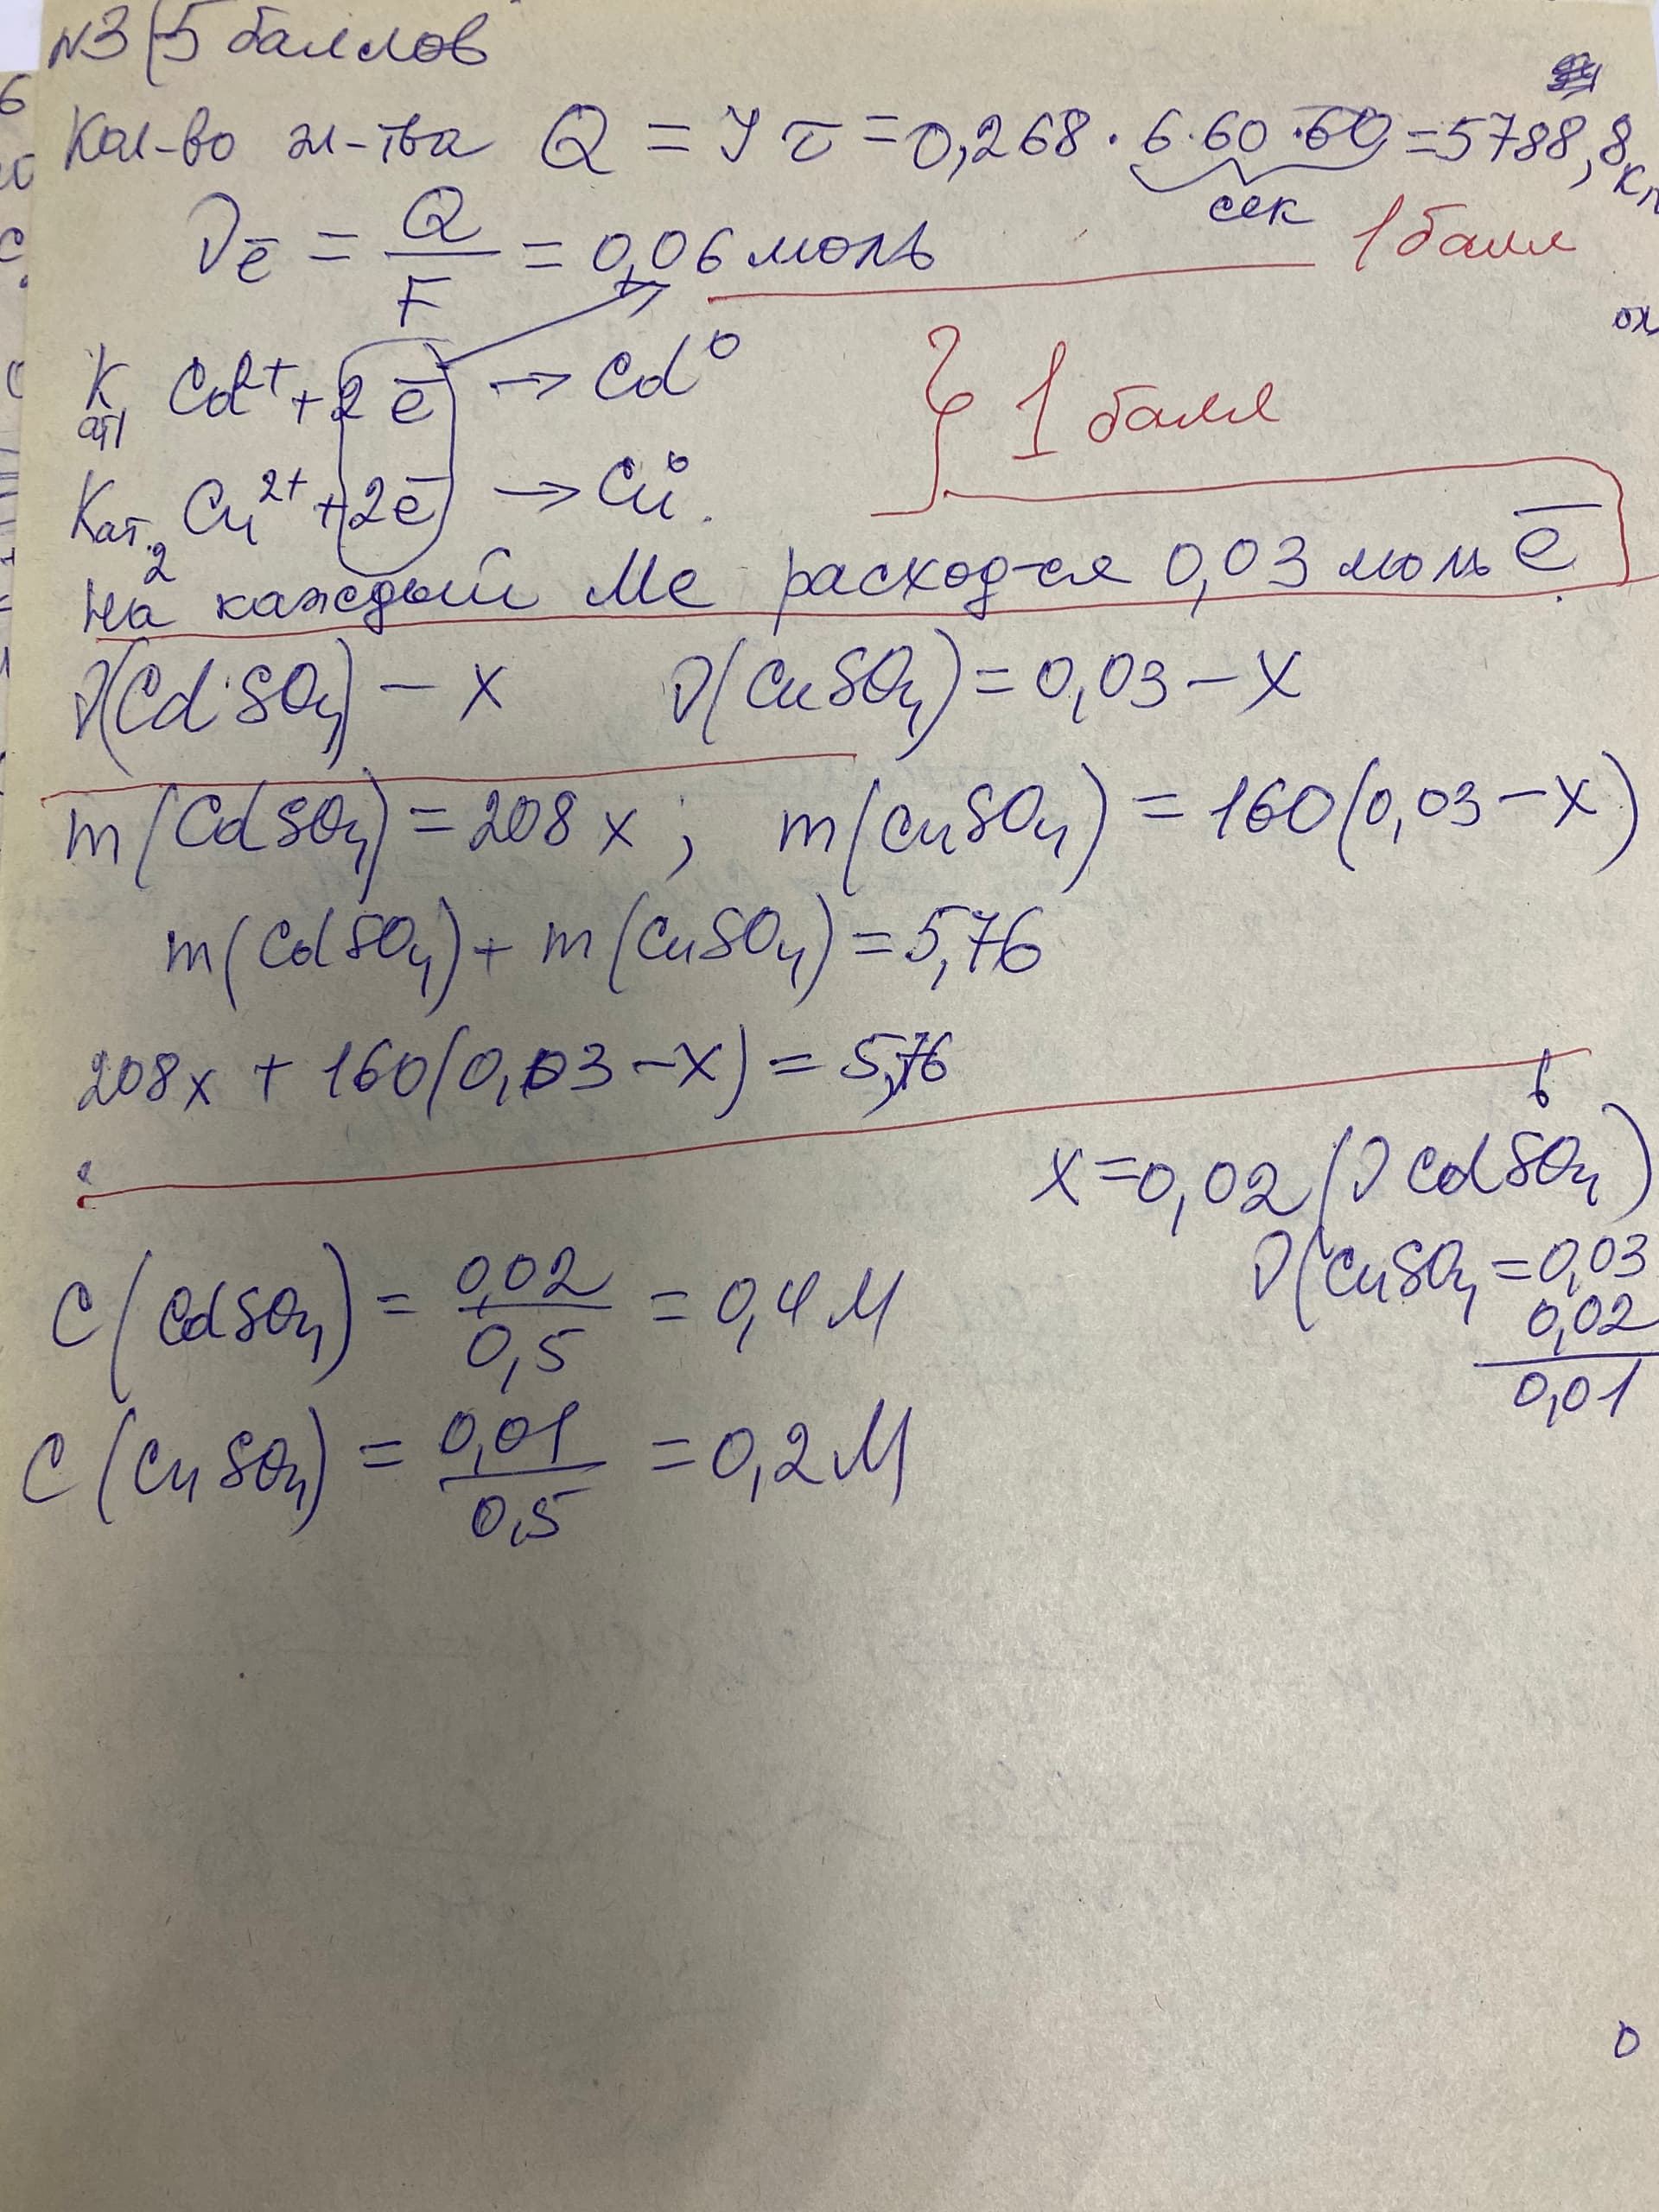 №3 (5 баллов
Кол-во эл-тва Q = Iτ = 0,268 · 6·60·60 = 5788,8 Кл
сек
νē = Q/F = 0,06 моль
1 балл
Кат1 Cd²⁺ + 2ē → Cd⁰
1 балл
Кат.2 Cu²⁺ + 2ē → Cu⁰.
На каждый Ме расход-ся 0,03 моль ē.
ν(CdSO₄) – x ν(CuSO₄) = 0,03 – x
m(CdSO₄) = 208x; m(CuSO₄) = 160(0,03 – x)
m(CdSO₄) + m(CuSO₄) = 5,76
208x + 160(0,03 – x) = 5,76
x = 0,02 (ν CdSO₄)
ν(CuSO₄ = 0,03
0,02
0,01
C(CdSO₄) = 0,02/0,5 = 0,4 М
C(CuSO₄) = 0,01/0,5 = 0,2 М